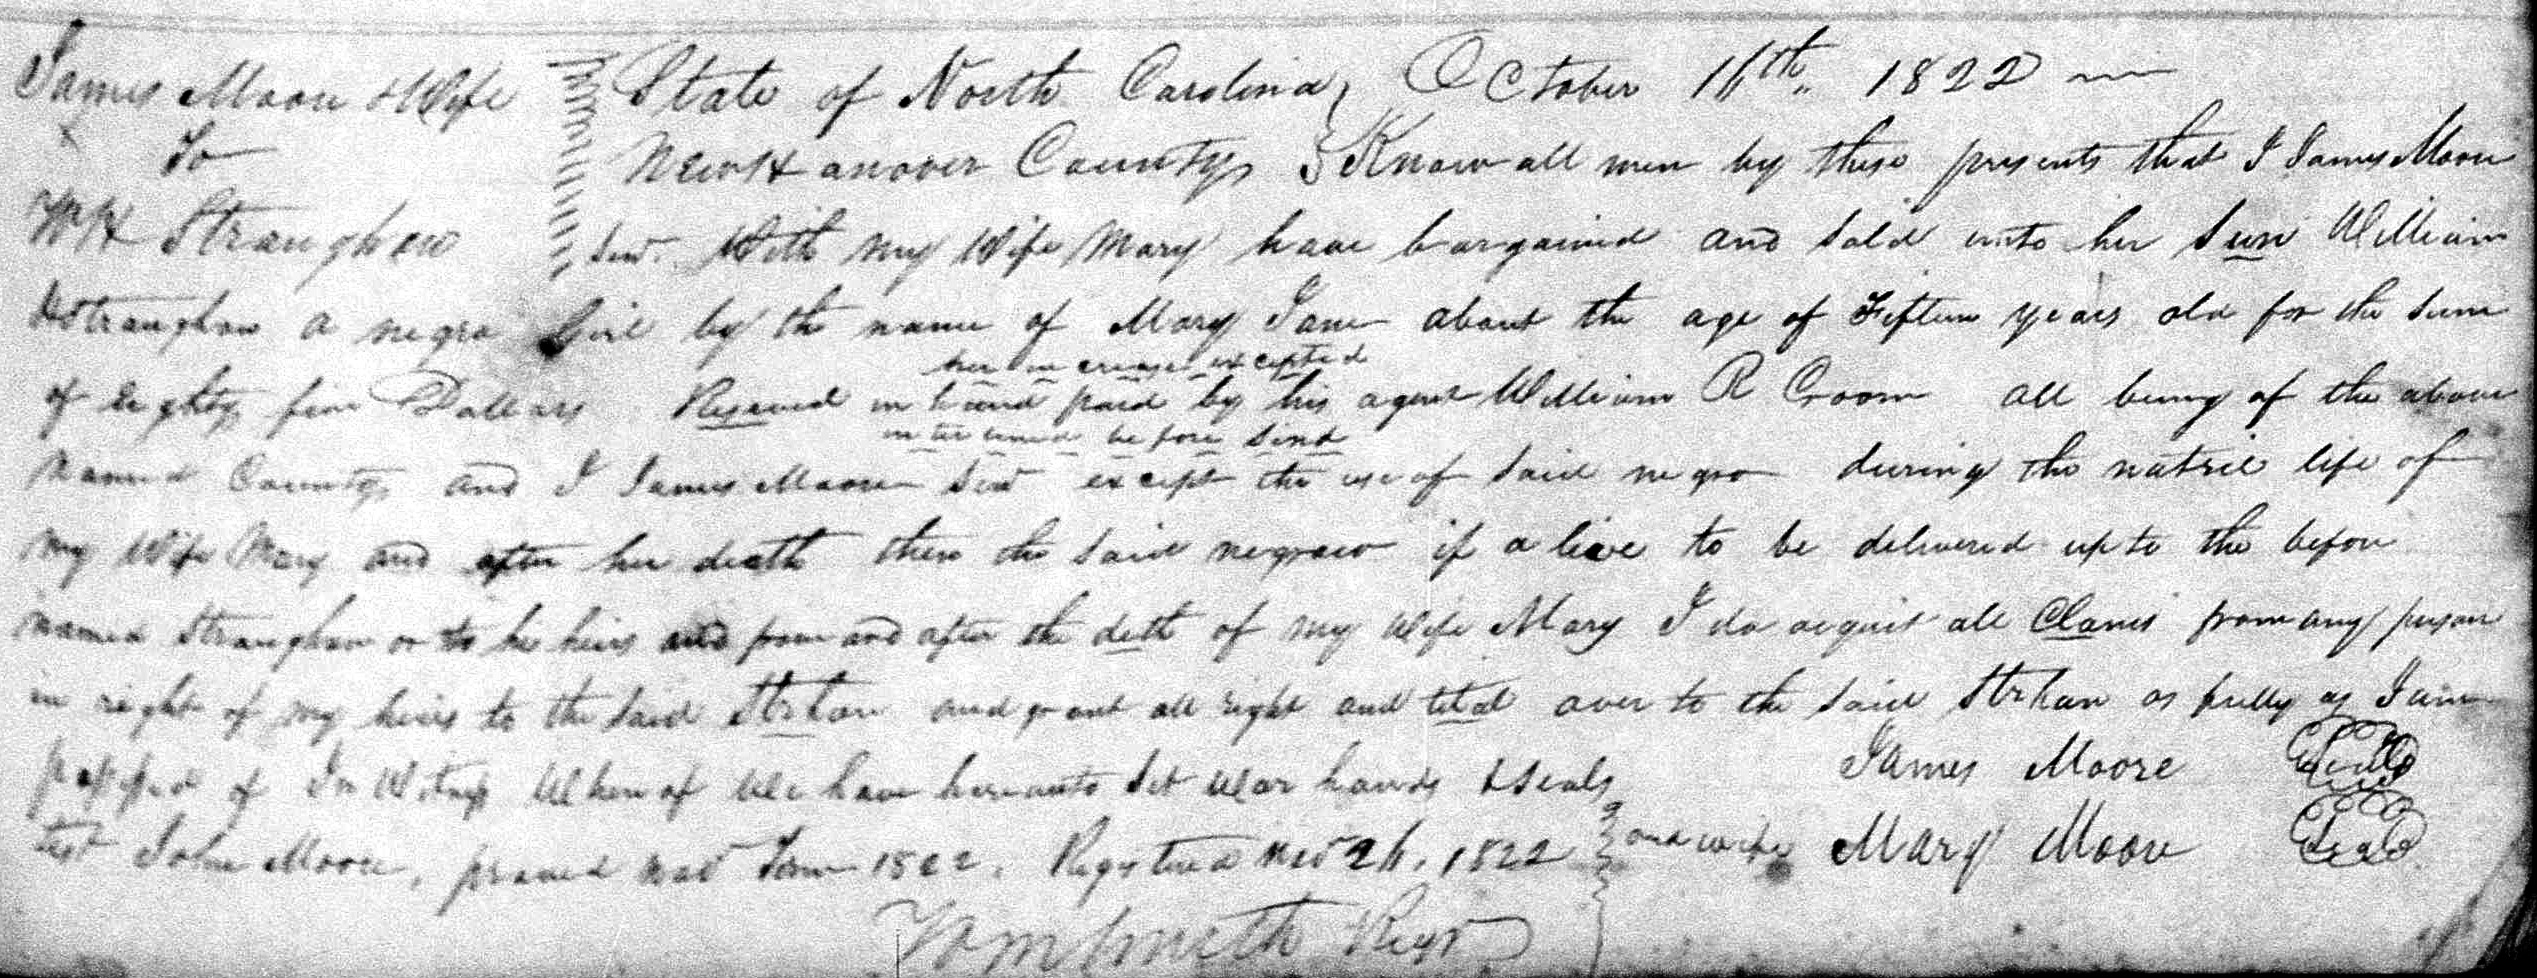 James Moore & Wife
To
W H Straughan
State of North Carolina } October 16th 1822
New Hanover County } Know all men by these presents that I James Moore
Senr. With my Wife Mary have bargained and Sold unto her Sun William
H Straughan a negro Girl by the name of Mary Jane about the age of Fifteen years old for the Sum
her in crease excepted
of eighty five Dollars Reseived in hand paid by his agent William R Croom all being of the above
in ter lined be fore Sind
Named County and I James Moore Senr except the use of Said negro during the natril life of
my Wife Mary and after her death then the Said negrow if a live to be delivered up to the before
named Straughan or to he heirs and from and after the deth of my Wife Mary I do acquit all Clames from any person
in right of my heirs to the Said Strhan and grant all right and tital over to the Said Strhan as fully as I am
possessd of In Witness Whereof We have hereunto Set our hands & Seals
James Moore Seal
test John Moore, proved Nov Term 1822. Registered Nov 26, 1822 } and wife Mary Moore Seal
Regr